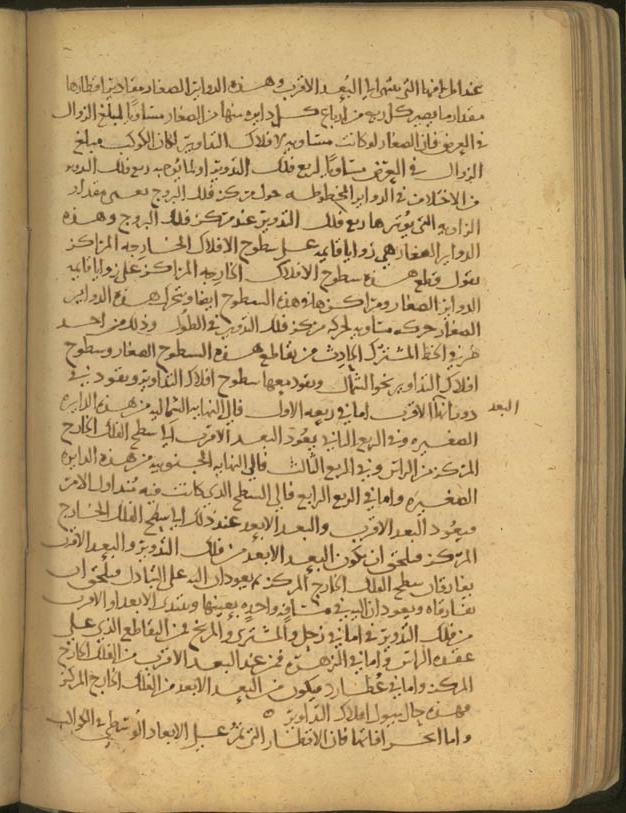 عند اطرافها التي تنتهي اليها البعد الاقرب وهذه الدواير الصغار مقادير اقطارها
مقدار ما يصير كل ربع من ارباع كل دايره منها من الصغار مساويا لمبلغ الزوال
في العرض فان الصغار لو كانت مساويه لافلاك التداوير لكان الكوكب مبلغ
الزوال في العرض مساويا لربع فلك التدوير او لما يوجبه ربع فلك التدوير
من الاختلاف في الدواير المخطوطه حول مركز فلك البروج بمقدار
الزاويه التي يوترها ربع فلك التدوير عند مركز فلك البروج وهذه
الدواير الصغار هي زوايا قايمه على سطوح الافلاك الخارجه المراكز
نقول قطع هذه سطوح الافلاك الخارجه المراكز على زوايا قايمه
الدواير الصغار ومراكزها وهذه السطوح ايضا وتحرك هذه الدواير
الصغار حركه مساويه لحركه مركز فلك التدوير في الطول وذلك من احد
طرفي الخط المشترك الحادث من تقاطع هذه السطوح الصغار وسطوح
افلاك التداوير نحو الشمال ويقود معها سطوح افلاك التداوير ويقود في
دورانها الاقرب اما في ربعه الاول فالي النهايه الشماليه من هذه الدايره
البعد
الصغيره وفي الربع الثاني يعود البعد الاقرب الي سطح الفلك الخارج
المركز من الراس وفي الربع الثالث فالي النهايه الجنوبيه من هذه الدايره
الصغيره واما في الربع الرابع فالي السطح الذي كانت فيه منذ اول الامر
فيعود البعد الاقرب والبعد الابعد عند ذلك الي سطح الفلك الخارج
المركز فيلحق ان يكون البعد الابعد من فلك التدوير والبعد الاقرب
يفارقان سطح الفلك الخارج المركز ثم يعودان اليه على التبادل فيلحق ان
يفارقاه ويعودان اليه في مسافه واحده بعينها ويبتدي الابعد او الاقرب
من فلك التدوير في اما في زحل والمشتري والمريخ فمن التقاطع الذي على
عقده الراس واما في الزهره فمن عند البعد الاقرب من الفلك الخارج
المركز واما في عطارد فيكون من البعد الابعد من الفلك الخارج المركز
فهذه حال ميول افلاك التداوير
واما انحرافاتها فان الاقطار التي تمر على الابعاد الوسطي في الكواكب